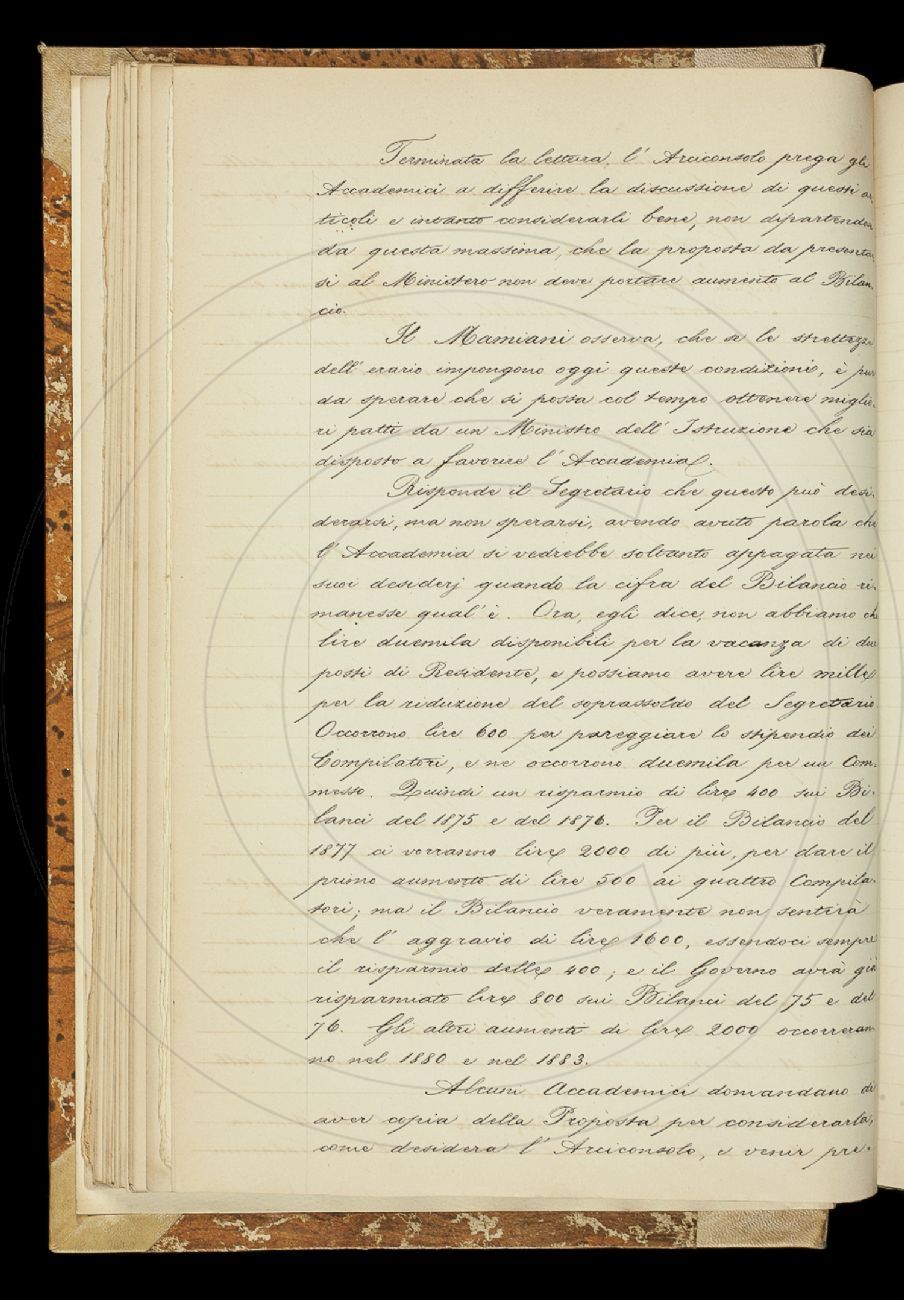 Terminata la lettura, l' Arciconsolo prega gli
Accademici a differire la discussione di questi ar
ticoli e intanto considerarli bene, non dipartendosi
da questa massima, che la proposta da presentar
si al Ministero non deve portare aumento al Bilan-
cio.
Il Mamiani osserva, che se le strettezze
dell' erario impongono oggi queste condizioni, è pur
da sperare che si possa col tempo ottenere miglio-
ri patti da un Ministro dell' Istruzione che sia
disposto a favorire l' Accademia.
Risponde il Segretario che questo può desi-
derarsi, ma non sperarsi, avendo avuto parola che
l' Accademia si vedrebbe soltanto appagata nei
suoi desiderj quando la cifra del Bilancio ri-
manesse qual' è. Ora, egli dice, non abbiamo che
lire duemila disponibili per la vacanza di due
posti di Residente, e possiamo avere lire mille
per la riduzione del soprassoldo del Segretario
Occorrono lire 600 per pareggiare lo stipendio dei
Compilatori, e ne occorrono duemila per un Com-
messo. Quindi un risparmio di lire 400 sui Bi-
lanci del 1875 e del 1876. Per il Bilancio del
1877 ci vorranno lire 2000 di più, per dare il
primo aumento di lire 500 ai quattro Compila-
tori; ma il Bilancio veramente non sentirà
che l' aggravio di lire 1600, essendoci sempre
il risparmio delle 400; e il Governo avrà già
risparmiato lire 800 sui Bilanci del 75 e del
76. Gli altri aumenti di lire 2000 occorreran
no nel 1880 e nel 1883.
Alcuni Accademici domandano di
aver copia della Proposta per considerarla,
come desidera l' Arciconsolo, e venir pre-